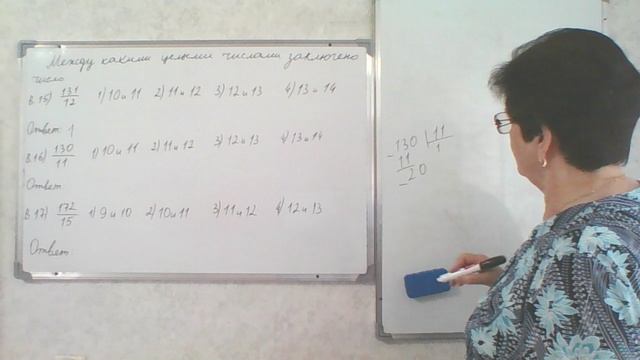 Между какими целыми числами заключено
число
В.15) 131/12 1) 10 и 11 2) 11 и 12 3) 12 и 13 4) 13 и 14
Ответ: 1
В.16) 130/11 1) 10 и 11 2) 11 и 12 3) 12 и 13 4) 13 и 14
Ответ
В.17) 172/15 1) 9 и 10 2) 10 и 11 3) 11 и 12 4) 12 и 13
Ответ
130 | 11
- 11 1
20
-